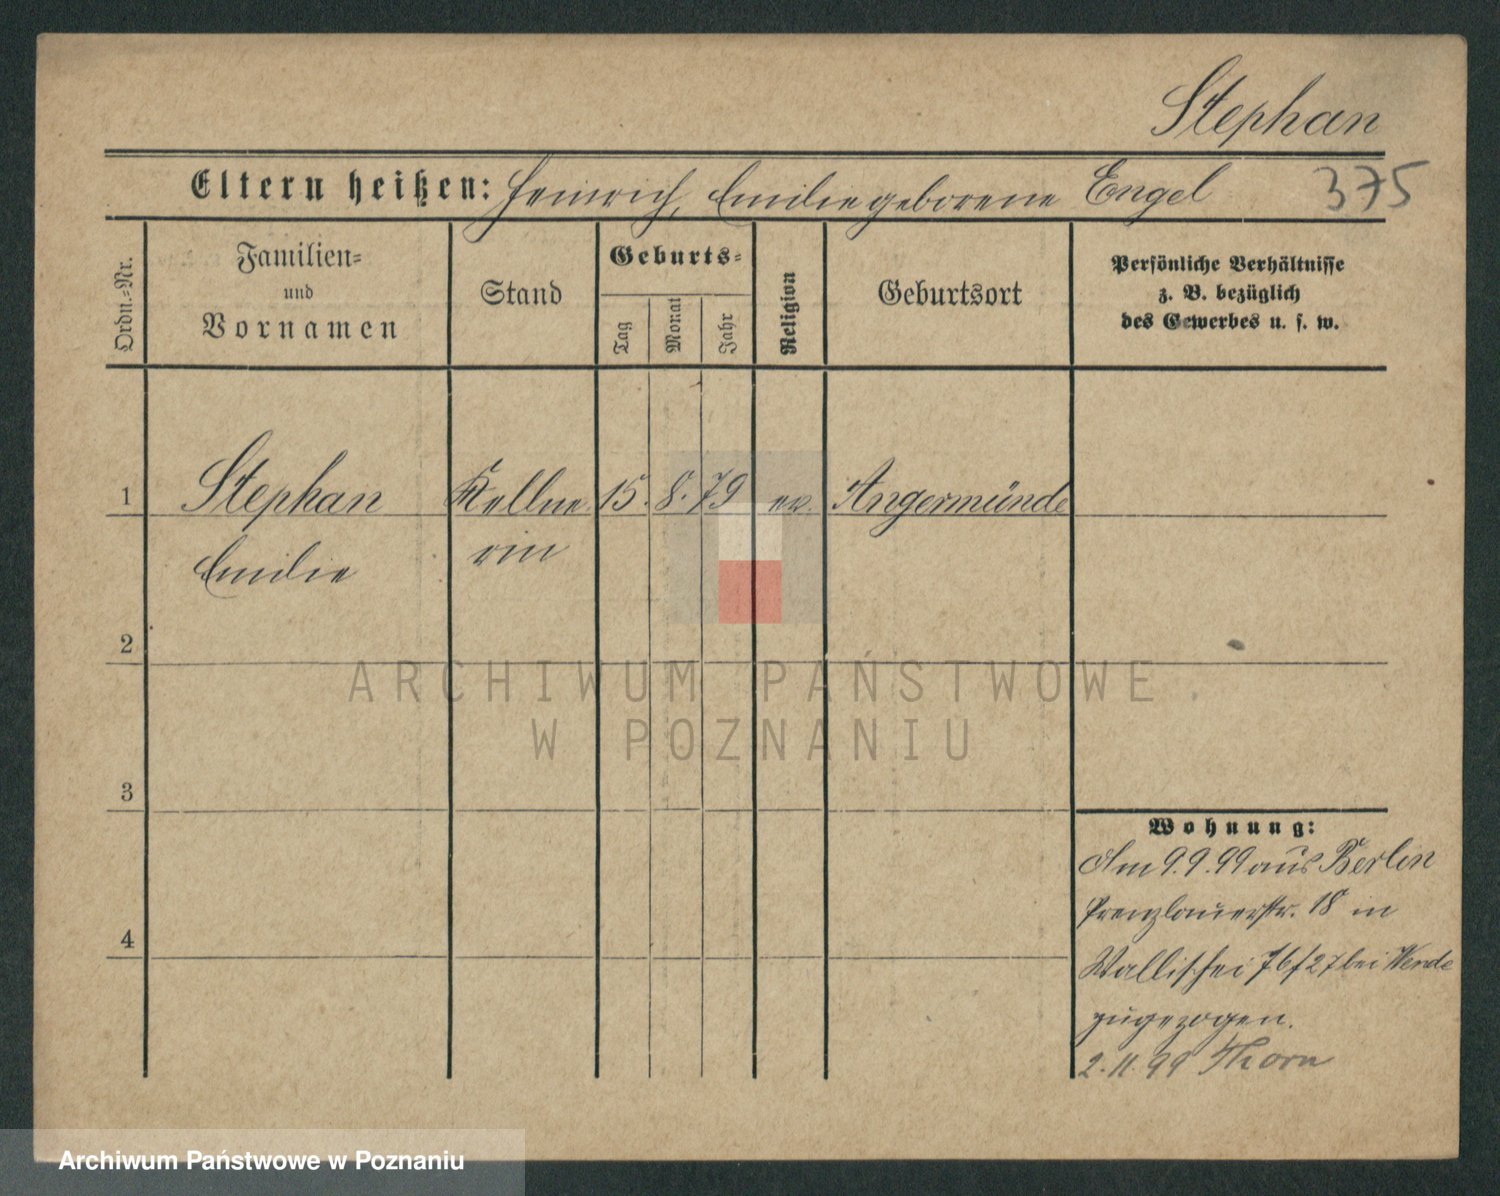 Stephan
Eltern heißen: Heinrich, Emilie geborene Engel 375
Ordn.=Nr.
Familien=
und
Vornamen
Stand
Geburts=
Tag
Monat
Jahr
Religion
Geburtsort
Persönliche Verhältnisse
z. B. bezüglich
des Gewerbes u. s. w.
1 Stephan Kellne 15. 8. 79 ev. Angermünde
Emilie rin
2
3
4
Wohnung:
Am 9.9.99 aus Berlin
Prenzlauerstr. 18 in
Wallischei 76/27 bei Wende
zugezogen.
2.11.99 Thorn
ARCHIWUM PAŃSTWOWE
W POZNANIU
Archiwum Państwowe w Poznaniu